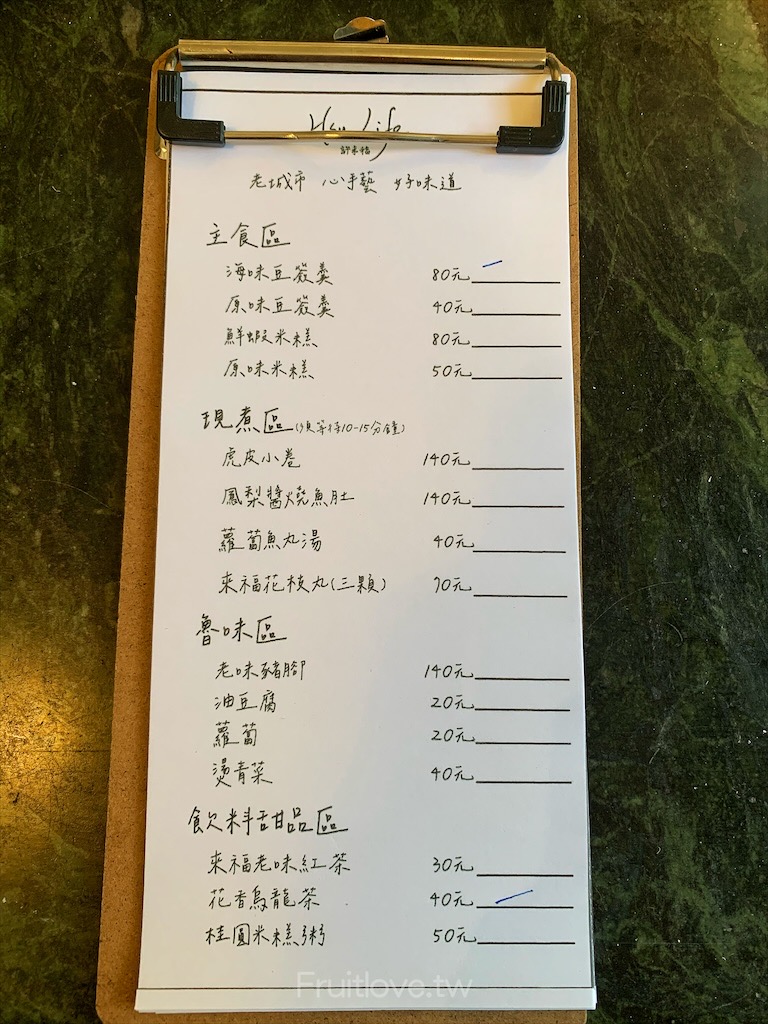 Hsu Life
許來福
老城市 心手藝 好味道
主食區
海味豆簽羹 80元
原味豆簽羹 40元
鮮蝦米糕 80元
原味米糕 50元
現煮區(須等待10-15分鐘)
虎皮小卷 140元
鳳梨醬燒魚肚 140元
蘿蔔魚丸湯 40元
來福花枝丸(三顆) 70元
魯味區
老味豬腳 140元
油豆腐 20元
蘿蔔 20元
燙青菜 40元
飲料甜品區
來福老味紅茶 30元
花香烏龍茶 40元
桂圓米糕粥 50元
Fruitlove.tw